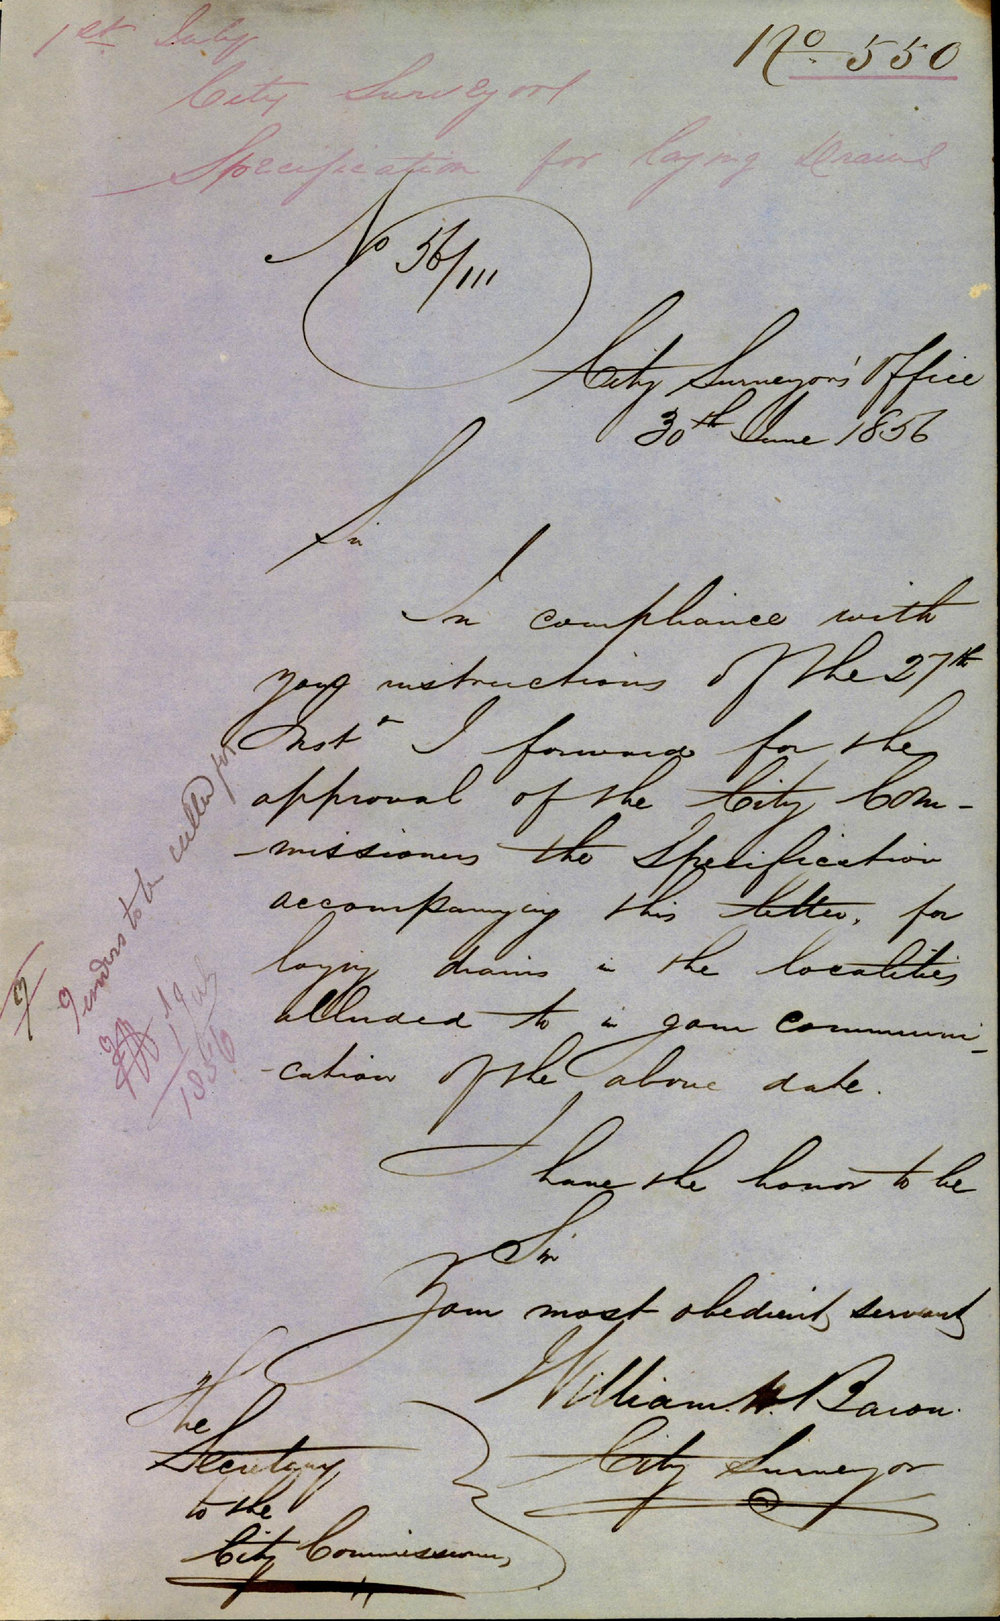 No 550
1st July
City Surveyor
Specification for laying Drains
No 56/111
City Surveyors' Office
30th June 1856
Sir
In compliance with
your instructions of the 27th
Inst I forward for the
approval of the City Com-
-missioners the Specification
accompanying this letter, for
laying drains in the localities
alluded to in your communi-
-cation of the above date.
I have the honor to be
Sir
Your most obedient servant
William. W. Bacon.
City Surveyor
The
Secretary
to the
City Commissioners
Tenders to be called for
1 July
1856